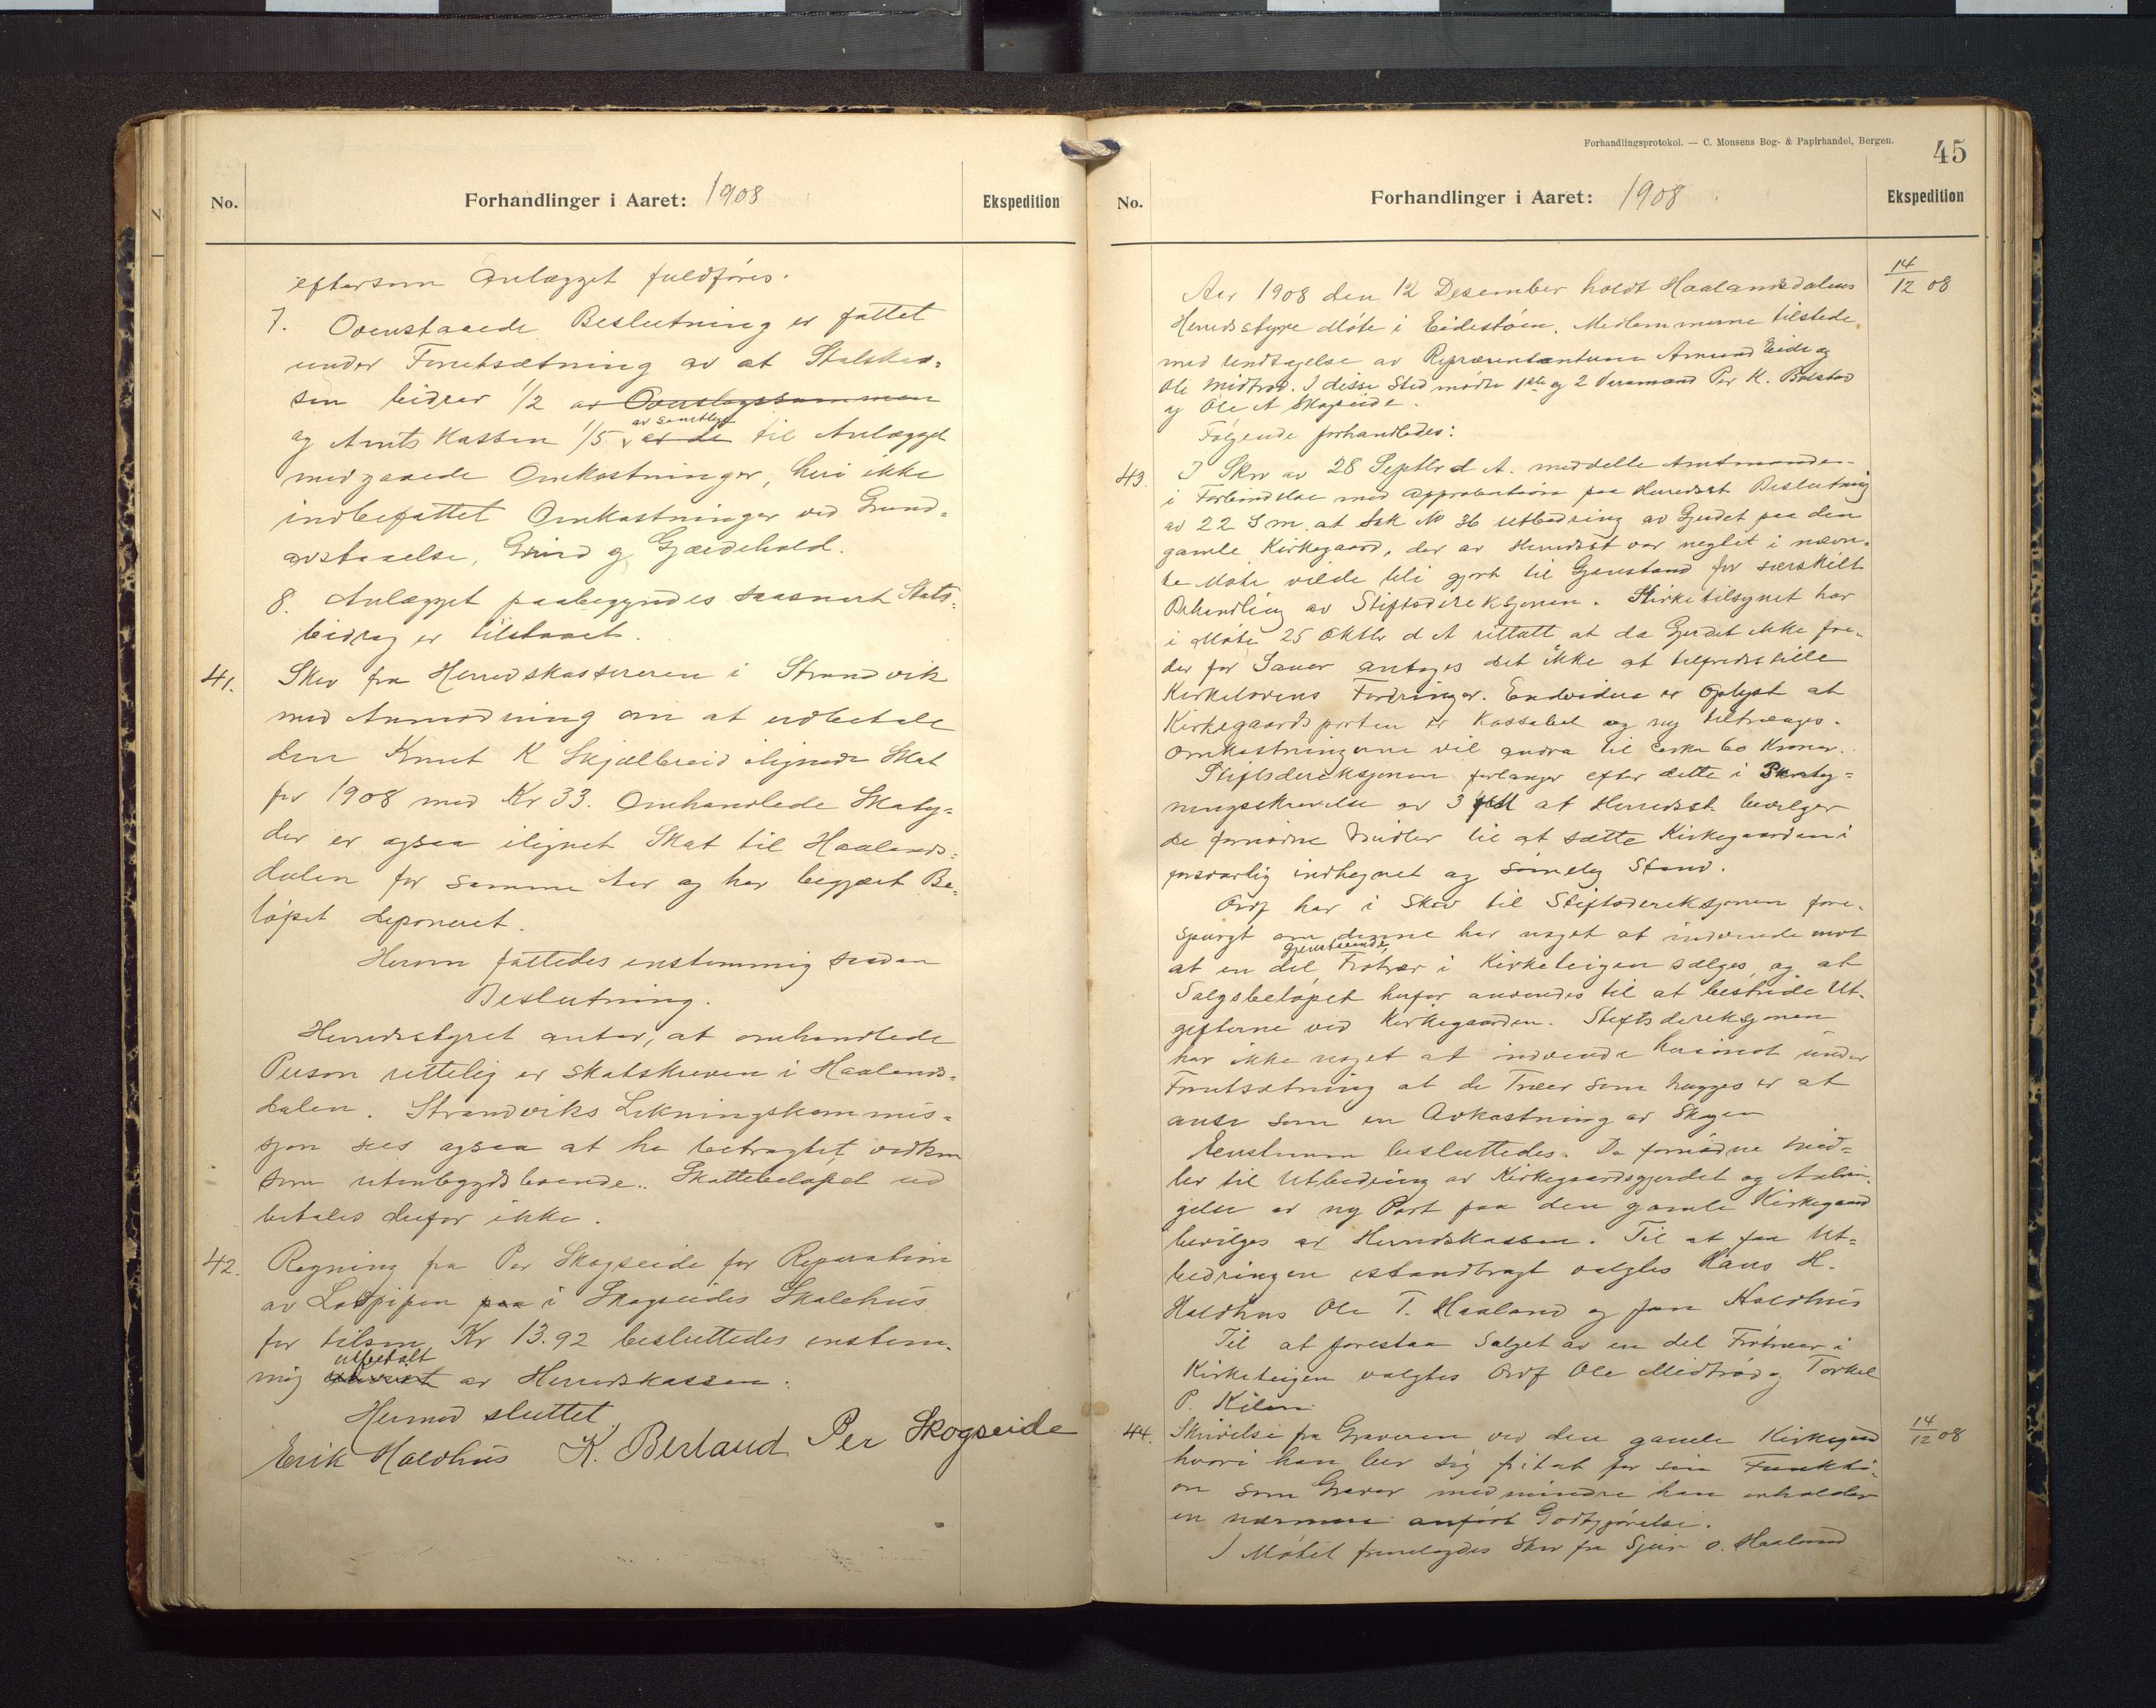 No.
Forhandlinger i Aaret: 1908
Ekspedition
eftersom Anlægget fuldføres.
7. Ovenstaaede Beslutning er fattet
under Forutsætning av at Statskas-
sen bidrar 1/2 av Overslagssummen
og Amtskassen 1/5 av samtlige av de til Anlægget
medgaaede Omkostninger, heri ikke
indbefattet Omkostninger ved Grund-
avstaaelse, Grind og Gjærdehold.
8. Anlægget paabegyndes saasnart Stats-
bidrag er tilstaaet.
41. Skr fra Herredskassereren i Strandvik
med Anmodning om at udbetale
den Knut K Skjælbreid ilignede Skat
for 1908 med Kr 33. Omhandlede Skaty-
der er ogsaa ilignet Skat til Haalands-
dalen for samme Aar og har begjært Be-
løpet deponeret.
Herom fattedes enstemmig saadan
Beslutning.
Herredsstyret antar, at omhandlede
Person rettelig er skatskreven i Haalands-
dalen. Strandviks Likningskommis-
sjon sees ogsaa at ha betragtet vedkom
som utenbygdsboende. Skattebeløpet ud
betales derfor ikke.
42. Regning fra Per Skogseide for Reparation
av Lodpipen paa i Skogseides Skolehus
for tilsam Kr 13.92 besluttedes enstem-
mig utbetalt av Herredskassen.
Hermed sluttet.
Erik Holdhus K. Berland Per Skogseide
Forhandlingsprotokol. — C. Monsens Bog- & Papirhandel, Bergen.
45
No.
Forhandlinger i Aaret: 1908
Ekspedition
14/12 08
Aar 1908 den 12 Desember holdt Haalandsdalens
Herredsstyre Møte i Eidestøen. Medlemmerne tilstede
med Undtagelse av Repræsentanterne Amund Eide og
Ole Midtrød. I disses Sted mødte 1ste og 2 Varamand Per K. Bolstad
og Ole A Skogseide.
Følgende forhandledes:
43. I Skr av 28 Septbr d A. meddelte Amtmanden
i Forbindelse med Approbation paa Herredsst Beslutning
av 22 S m. at Sak No 36 utbedring av Gjerdet paa den
gamle Kirkegaard, der av Herredsst var negtet i nævn-
te Møte vilde bli gjort til Gjenstand for særskilt
Behandling av Stiftsdireksjonen. Kirketilsynet har
i Møte 25 Oktbr d A uttalt at da Gjerdet ikke fre-
der for Sauer antages det ikke at tilfredsstille
Kirkelovens Fordringer. Endvidere er oplyst at
Kirkegaardsporten er kassabel og ny tiltrænges.
Omkostningerne vil andra til cirka 60 Kroner.
Stiftsdireksjonen forlanger efter dette i Skr
av 3 at Herredsst bevilger
de fornødne Midler til at sætte Kirkegaarden i
forsvarlig indhegnet og sømelig Stand.
Ordf har i Skr til Stiftsdireksjonen fore-
spurgt om denne har noget at indvende mot
at en del gjenstaaende Frøtrær i Kirketeigen sælges, og at
Salgsbeløpet herfor anvendes til at bestride Ut-
gifterne ved Kirkegaarden. Stiftsdireksjonen
har ikke noget at indvende herimot under
Forutsætning at de Træer som hugges er at
anse som en Avkastning av Skogen
Enstemm besluttedes. De fornødne Mid-
ler til Utbedring av Kirkegaardsgjerdet og Anbrin-
gelse av ny Port paa den gamle Kirkegaard
bevilges av Herredskassen. Til at faa Ut-
bedringen istandbragt valgtes Hans H.
Holdhus Ole T. Haaland og Jon Holdhus
Til at forestaa Salget av en del Frøtrær i
Kirketeigen valgtes Ordf Ole Midtrød og Torkel
P. Kilen.
44. Skrivelse fra Graveren ved den gamle Kirkegaard 14/12 08
hvori han ber sig fritat for sin Funkti-
on som Graver medmindre han erholder
en nærmere anført Godtgjørelse.
I Møtet fremlagdes Skr fra Sjur O. Haaland